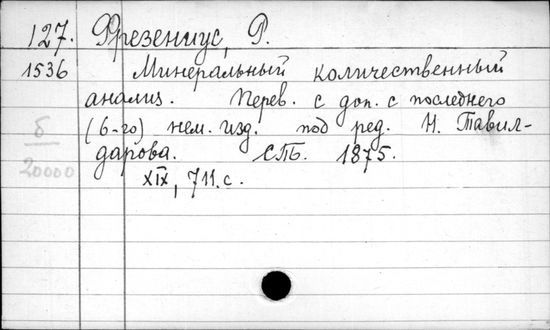 127. Фрезениус, Р.
1536 Минеральный количественный
анализ. Перев. с доп. с последнего
(6-го) нем. изд. под ред. Н. Тавил-
дарова. СПб. 1875.
XIX, 711 с.
б
20000